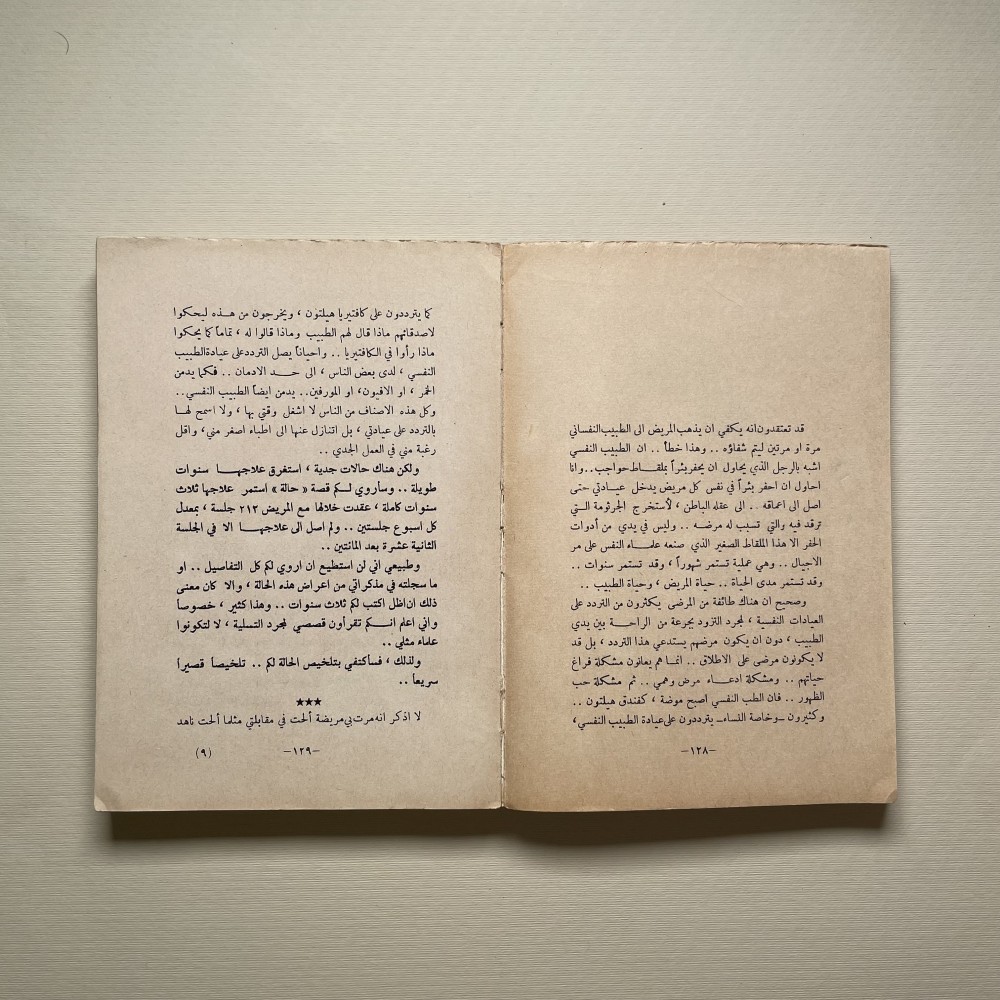 قد تعتقدون انه يكفي ان يذهب المريض الى الطبيب النفساني
مرة او مرتين ليتم شفاؤه .. وهذا خطأ .. ان الطبيب النفسي
اشبه بالرجل الذي يحاول ان يحفر بئراً بملقاط حواجب .. وانا
احاول ان احفر بئراً في نفس كل مريض يدخل عيادتي حتى
اصل الى اعماقه .. الى عقله الباطن ، لأستخرج الجرثومة التي
ترقد فيه والتي تسبب له مرضه .. وليس في يدي من أدوات
الحفر الا هذا الملقاط الصغير الذي صنعه علماء النفس على مر
الاجيال .. وهي عملية تستمر شهوراً ، وقد تستمر سنوات ..
وقد تستمر مدى الحياة .. حياة المريض ، وحياة الطبيب ..
وصحيح ان هناك طائفة من المرضى يكثرون من التردد على
العيادات النفسية ، لمجرد التزود بجرعة من الراحة بين يدي
الطبيب ، دون ان يكون مرضهم يستدعي هذا التردد ، بل قد
لا يكونون مرضى على الاطلاق .. انما هم يعانون مشكلة فراغ
حياتهم .. ومشكلة ادعاء مرض وهمي .. ثم مشكلة حب
الظهور .. فان الطب النفسي اصبح موضة ، كفندق هيلتون ..
وكثيرون ــ وخاصة النساء ــ يترددون على عيادة الطبيب النفسي ،
–١٢٨–
كما يترددون على كافتيريا هيلتون ، ويخرجون من هذه ليحكوا
لاصدقائهم ماذا قال لهم الطبيب وماذا قالوا له ، تماماً كما يحكوا
ماذا رأوا في الكافتيريا .. واحياناً يصل التردد على عيادة الطبيب
النفسي ، لدى بعض الناس ، الى حد الادمان .. فكما يدمن
الخمر ، او الافيون ، او المورفين .. يدمن ايضاً الطبيب النفسي ..
وكل هذه الاصناف من الناس لا اشغل وقتي بها ، ولا اسمح لها
بالتردد على عيادتي ، بل اتنازل عنها الى اطباء اصغر مني ، واقل
رغبة مني في العمل الجدي ..
ولكن هناك حالات جدية ، استغرق علاجها سنوات
طويلة .. وساروي لكم قصة « حالة » استمر علاجها ثلاث
سنوات كاملة ، عقدت خلالها مع المريض ٢١٢ جلسة ، بمعدل
كل اسبوع جلستين .. ولم اصل الى علاجها الا في الجلسة
الثانية عشرة بعد المائتين ..
وطبيعي اني لن استطيع ان اروي لكم كل التفاصيل .. او
ما سجلته في مذكراتي من اعراض هذه الحالة ، والا كان معنى
ذلك ان اظل اكتب لكم ثلاث سنوات .. وهذا كثير ، خصوصاً
واني اعلم انكم تقرأون قصصي لمجرد التسلية ، لا لتكونوا
علماء مثلي ..
ولذلك ، فسأكتفي بتلخيص الحالة لكم .. تلخيصاً قصيراً
سريعاً ..
★★★
لا اذكر انه مرت بي مريضة ألحت في مقابلتي مثلما ألحت ناهد
–١٢٩–
(٩)